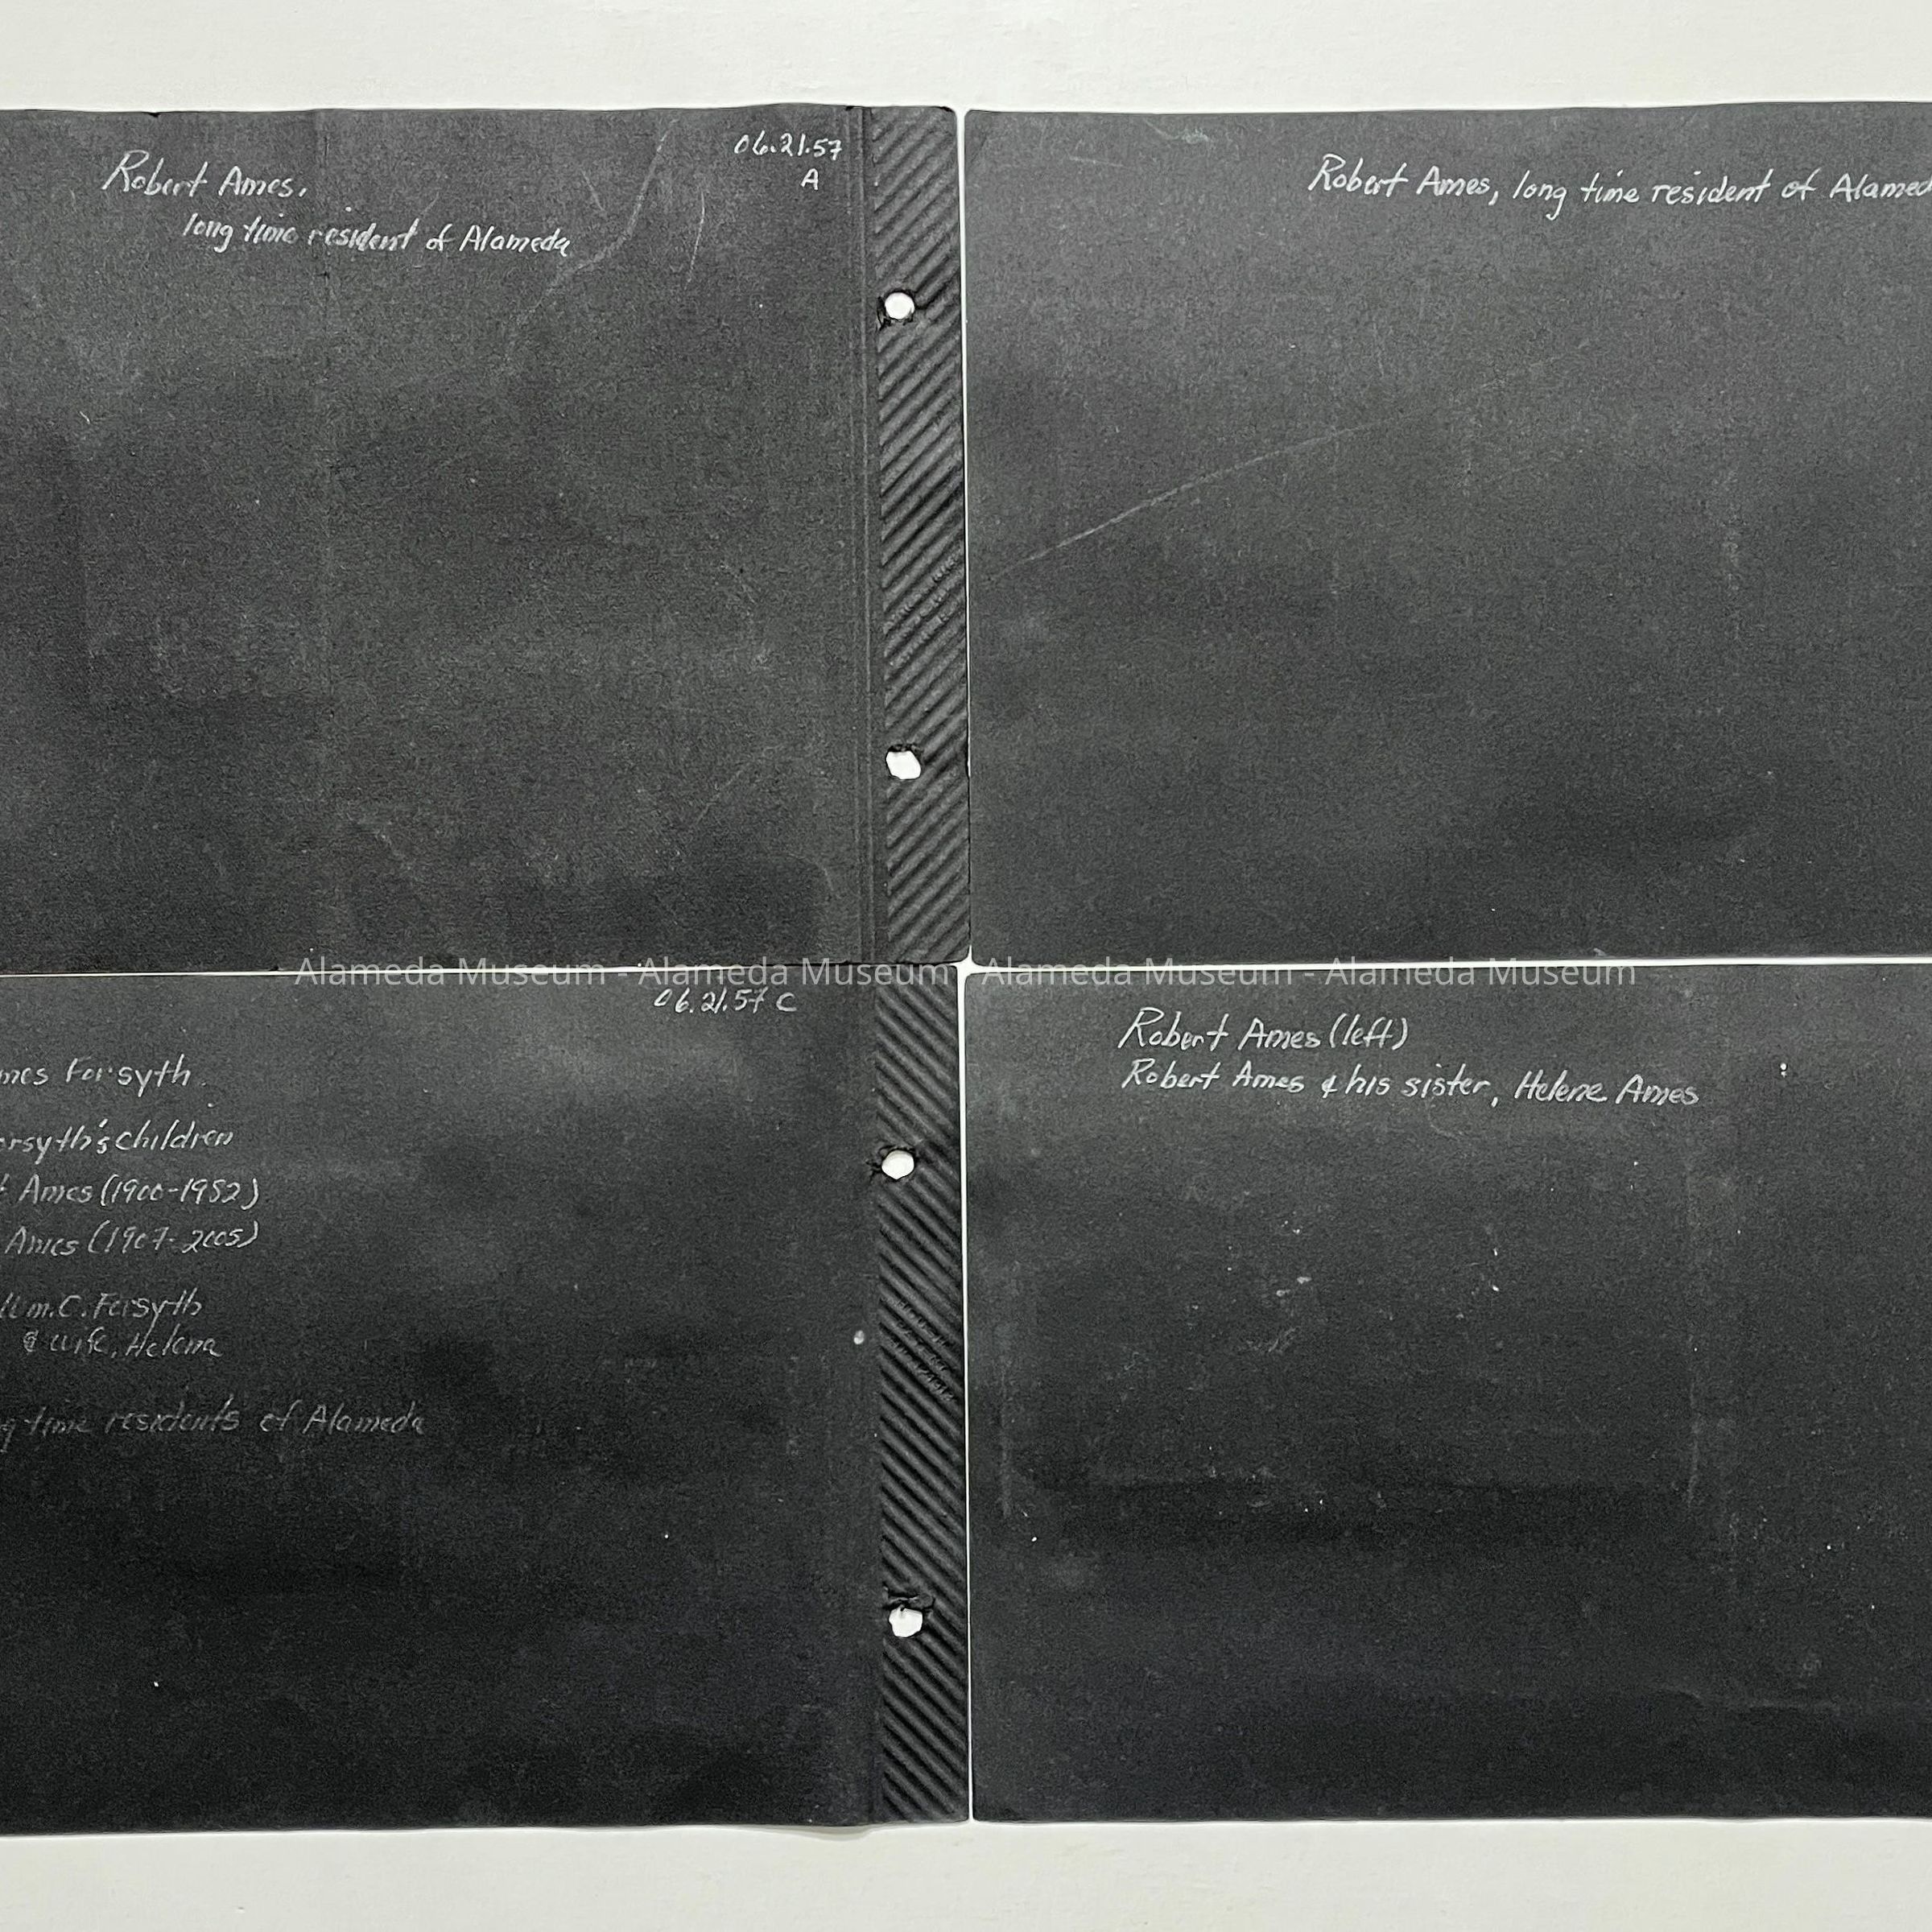 06.21.57
A
Robert Ames,
long time resident of Alameda
Robert Ames, long time resident of Alamed
Alameda Museum - Alameda Museum - Alameda Museum - Alameda Museum
06.21.57 C
mes Forsyth
orsyth's children
t Ames (1900-1982)
Ames (1907-2005)
Wm. C. Forsyth
& wife, Helena
g time residents of Alameda
Robert Ames (left)
Robert Ames & his sister, Helene Ames